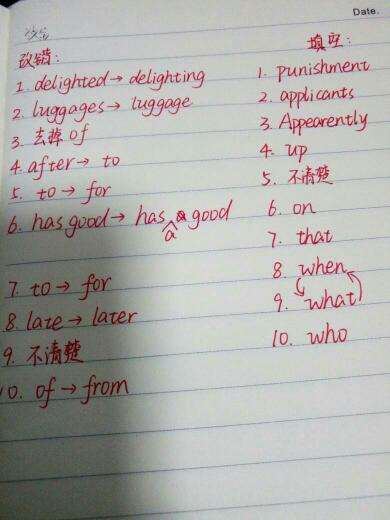 Date.
改错：
1. delighted → delighting
2. luggages → luggage
3. 去掉 of
4. after → to
5. to → for
6. has good → has a good
7. to → for
8. late → later
9. 不清楚
10. of → from
填空：
1. punishment
2. applicants
3. Appearently
4. up
5. 不清楚
6. on
7. that
8. when
9. what
10. who